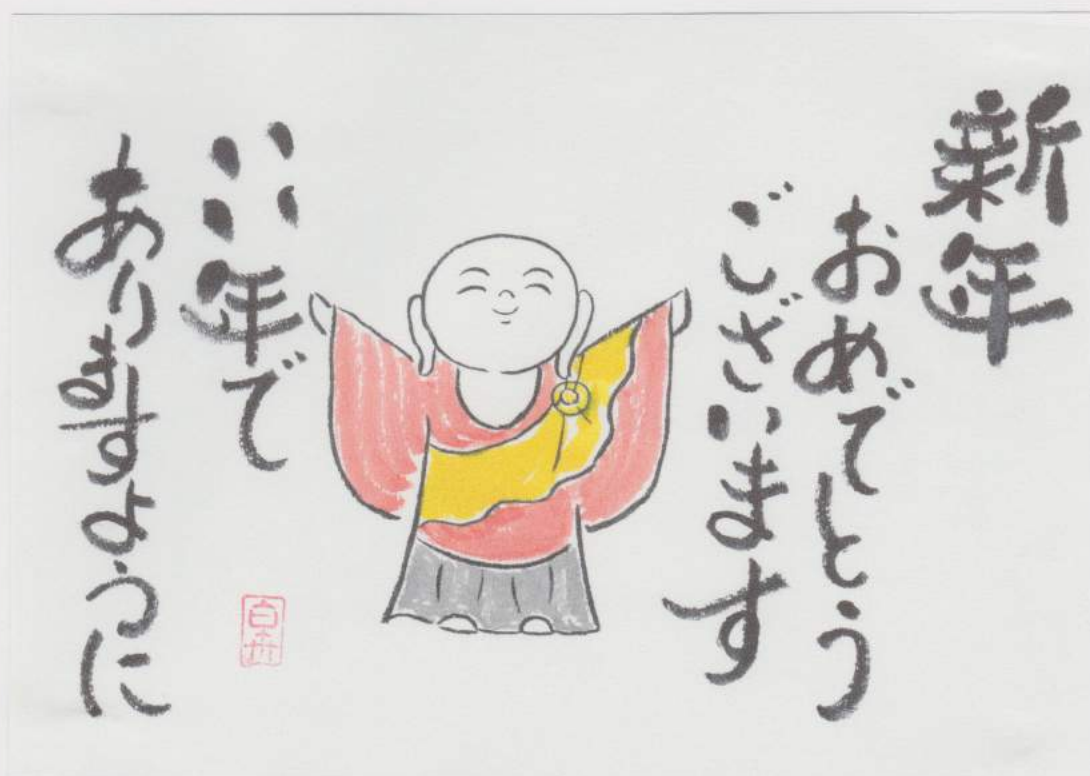 新年
おめでとう
ございます
いい年で
ありますように